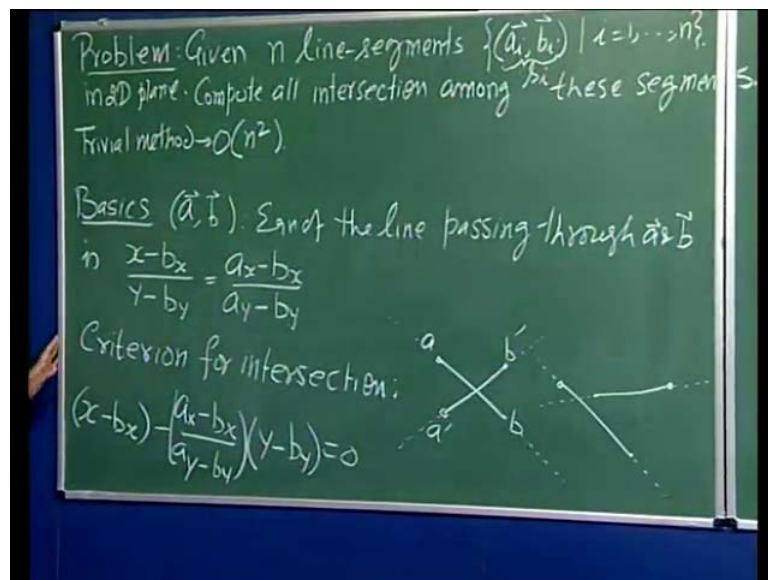 Problem: Given n line-segments {(a⃗i, b⃗i) | i=1, ..., n}
in 2D plane. Compute all intersection among these segments.
Trivial method → O(n²).
Basics (a⃗, b⃗). Eqn of the line passing through a⃗ & b⃗
is (x-bx)/(y-by) = (ax-bx)/(ay-by)
Criterion for intersection:
(x-bx) - ((ax-bx)/(ay-by))(y-by) = 0
a
b'
a'
b